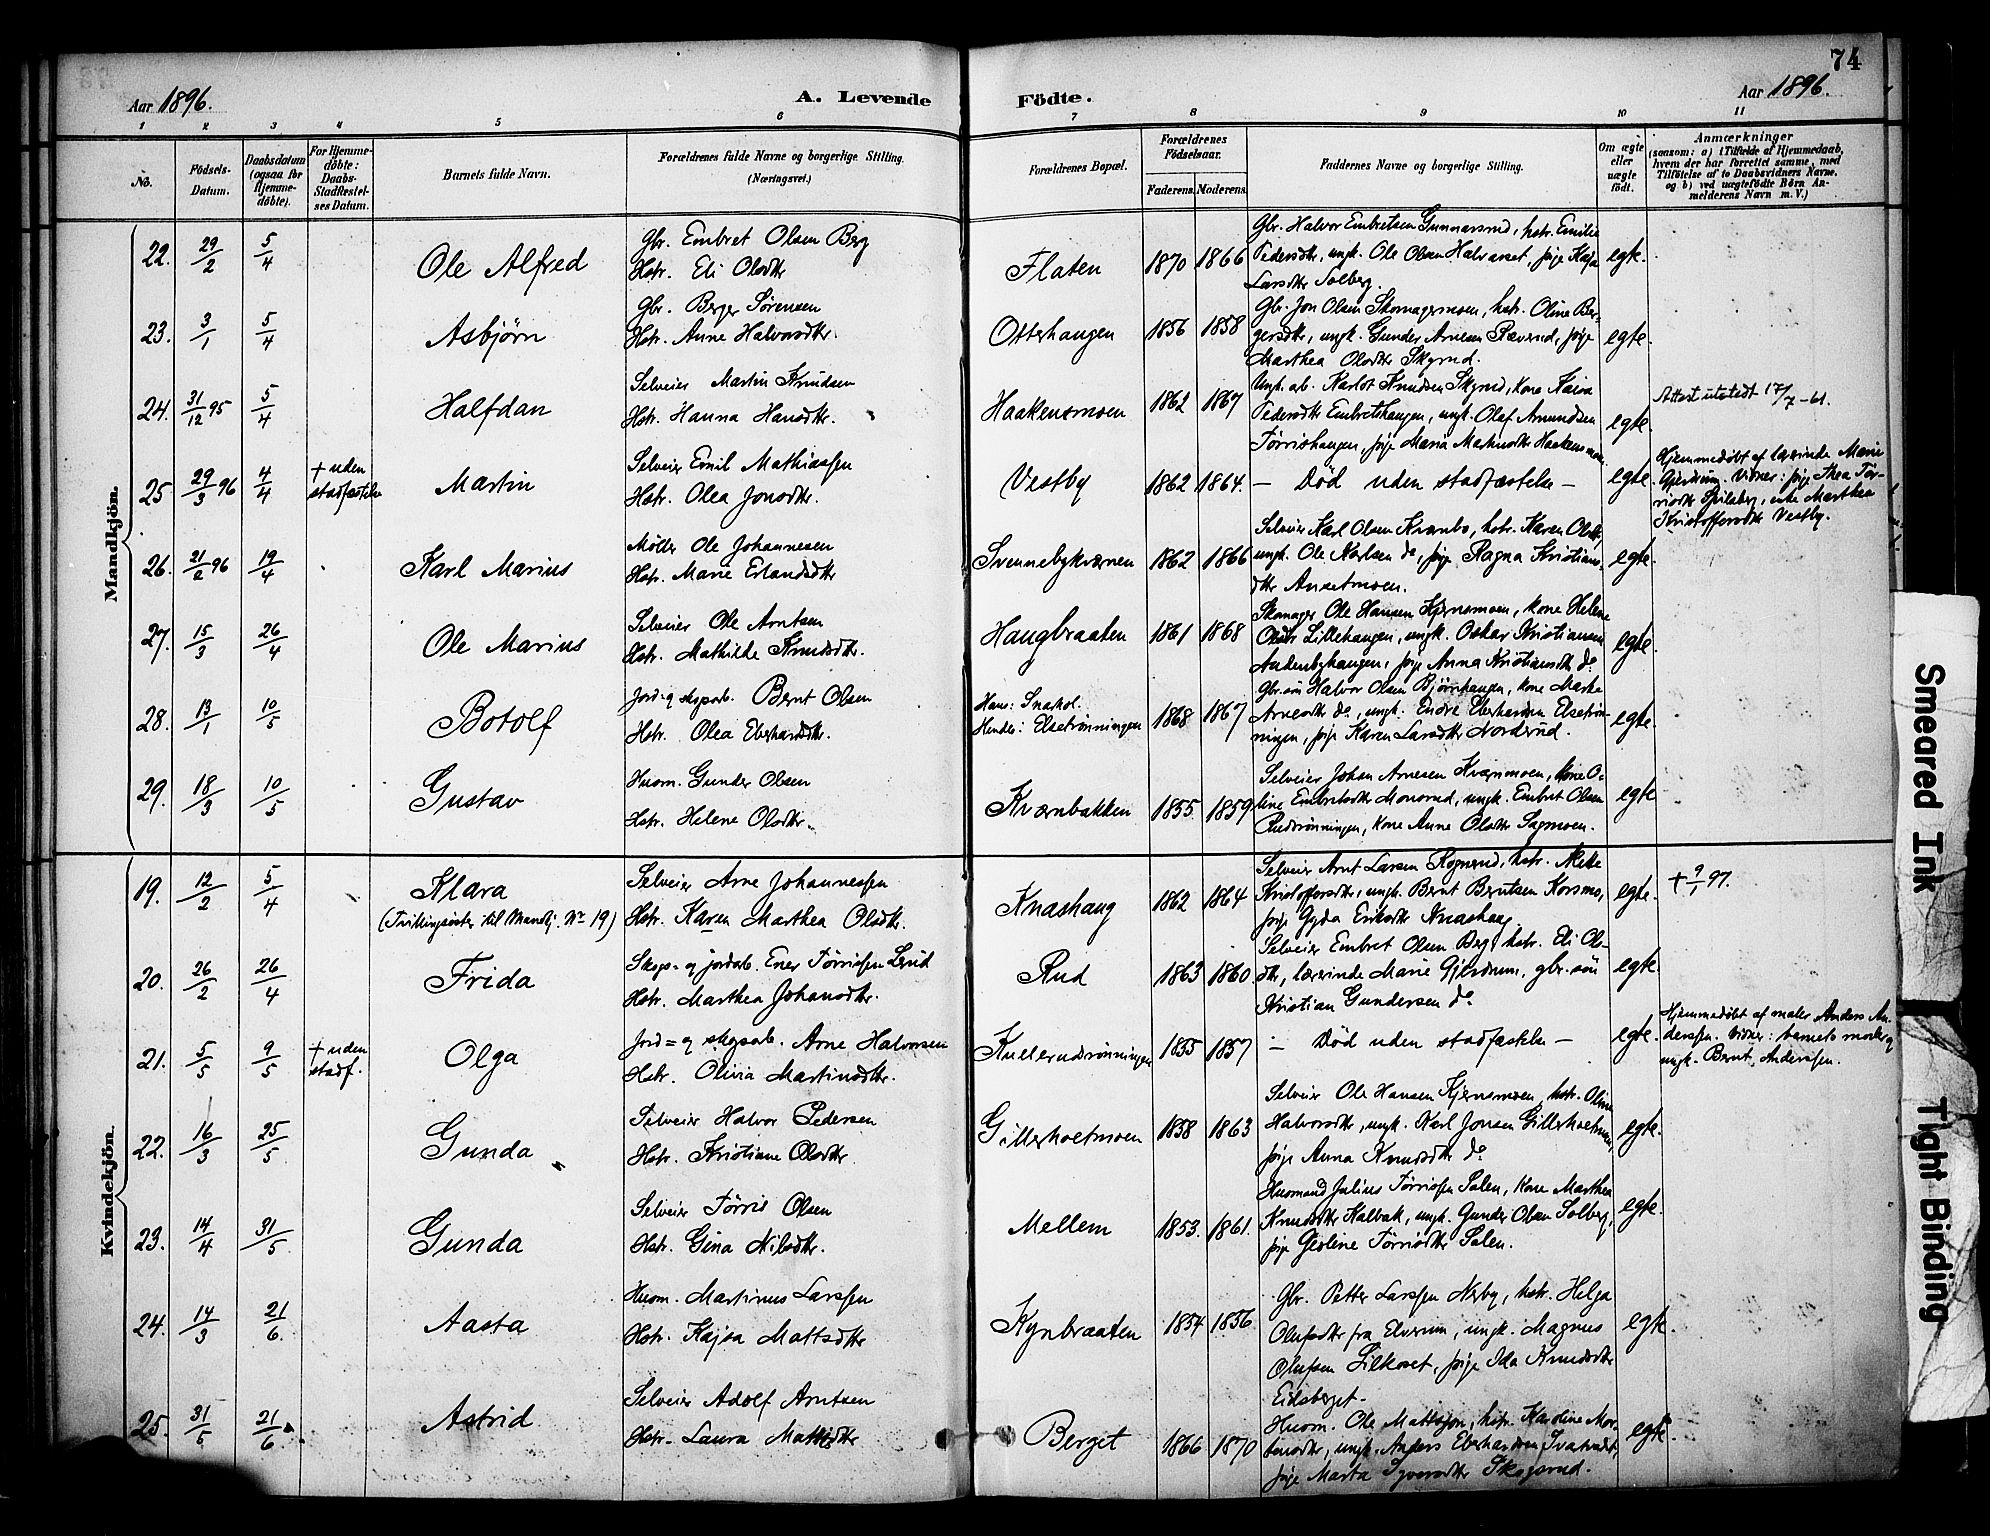 74
Aar 1896.
A. Levende
Födte.
Aar 1896.
1 2 3 4 5 6 7 8 9 10 11
No.
Födsels-
Datum.
Daabsdatum
(ogsaa for
Hjemme-
döbte).
For Hjemme-
döbte:
Daabs-
Stadfæstel-
ses Datum.
Barnets fulde Navn.
Forældrenes fulde Navne og borgerlige Stilling.
(Næringsvei.)
Forældrenes Bopæl.
Forældrenes
Födselsaar.
Faderens. Moderens.
Faddernes Navne og borgerlige Stilling.
Om ægte
eller
uægte
født.
Anmærkninger
(saasom: a) i Tilfælde af Hjemmedaab,
hvem der har forrettet samme, med
Tilföielse af to Daabsvidners Navne,
og b) ved uægtefödte Börn An-
melderens Navn m. V.)
Mandkjön.
22. 29/2 5/4 Ole Alfred
Gbr. Embret Olsen Berg
Hstr. Eli Olsdtr
Flaten 1870 1866
Gbr. Halvor Embretsen Gunnarsrud, hstr. Emilie
Pedersdtr, ungk. Ole Olsen Halvarset, pige Kaja
Larsdtr Solberg.
egte.
23. 3/1 5/4 Asbjörn
Gbr. Berger Sørensen
Hstr. Anne Halvorsdtr.
Otterhaugen 1856 1858
Gbr. Jon Olsen Skomagermoen, hstr. Oline Ber-
gersdtr, ungk. Gunder ArnesenRæverud, pige
Marthea Olsdtr Skyrud.
egte.
24. 31/12 95 5/4 Halfdan
Selveier Martin Knudsen
Hstr. Hanna Hansdtr.
Haakensmoen 1862 1867
Ungk. arb. Karlot Knudsen Skyrud, kone Kaisa
Pedersdtr Embretshaugen, ungk. Olaf Amundsen
Tørrishaugen, pige Maria Martinsdtr Haakensmoen.
egte.
Attest utstedt 17/7-61.
25 29/3 96 4/4 + uden
stadfæstelse
Martin
Selveier Emil Mathiassen
Hstr. Olea Jonsdtr.
Vestby 1862 1864.
- Död uden stadfæstelse -
egte
Hjemmedöbt af lærerinde Marie
Gjerdrum. Vidner: pige Thea Tør-
risdtr Spilsberg, enke Marthea
Kristoffersdtr Vestby.
26. 21/2 96 19/4 Karl Marius
Møller Ole Johannesen
Hstr. Marie Erlandsdtr
Svennebykværnen 1862 1866
Selveier Karl Olsen Krambo, hstr. Karen Olsdtr,
ungk. Ole Karlsen do, pige Ragna Kristians-
dtr Ansetmoen.
egte.
27. 15/3 26/4 Ole Marius
Selveier Ole Arntsen
Hstr. Mathilde Knudsdtr.
Haugbraaten 1861 1868
Skomager Ole Hansen Kjernsmoen, kone Helene
Olsdtr Lillehaugen, ungk. Oskar Kristiansen
Audenbyhaugen, pige Anna Kristiansdtr do
egte.
28. 13/1 10/5 Botolf
Jord- og skogsarb. Bernt Olsen
Hstr. Olea Eberhardsdtr.
Hans: Snarhol.
Hendes: Elsetrønningen
1868 1867
Gbr.søn Halvor Olsen Bjørnhaugen, kone Marte
Arnesdtr do, ungk. Endre Eberhardsen Elsetrøn-
ningen, pige Karen Larsdtr Norderud.
egte.
29. 18/3 10/5 Gustav
Husm. Gunder Olsen
Hstr. Helene Olsdtr.
Kværnbakken 1855 1859
Selveier Johan Arnesen Kværnmoen, kone O-
line Embretsdtr Monsrud, ungk. Embret Olsen
Rudsrønningen, kone Anne Olsdtr Sagmoen.
egte
Kvindekjön.
19. 12/2 5/4 Klara
(Tvillingsøster til Mandkj. No 19)
Selveier Arne Johannessen
Hstr. Karen Marthea Olsdtr.
Knashaug 1862 1864
Selveier Arnt Larsen Rognerud, hstr. Mette
Kristoffersdtr, ungk. Bernt Berntsen Korsmo,
pige Gyda Eriksdtr Knashaug
egte.
+ 9/1 97.
20. 26/2 26/4 Frida
Skogs- og jordarb. Ener Tørrissen Lerud
Hstr. Marthea Johansdtr.
Rud 1863 1860
Selveier Embret Olsen Berg, hstr. Eli Ols-
dtr, lærerinde Marie Gjerdrum, gbr. søn
Kristian Gundersen do
egte.
21. 5/5 9/5 + uden
stadf.
Olga
Jord- og skogsarb. Arne Halvorsen
Hstr. Olivia Martinsdtr.
Kullerudrønningen 1855 1857
- Död uden stadfæstelse -
egte.
Hjemmedöbt af maler Anders An-
derssen. Vidner: barnets moder og
ungk. Bernt Anderssen.
22. 16/3 25/5 Gunda
Selveier Halvor Pedersen
Hstr. Kristiane Olsdtr
Gillerholtmoen 1858 1863
Selveier Ole Hansen Kjernsmoen, hstr. Oline
Halvorsdtr, ungk. Karl Jonsen Gillerholtmoen,
pige Anna Knudsdtr do
egte.
23. 14/4 31/5 Gunda
Selveier Tørris Olsen
Hstr. Gina Nilsdtr.
Mellem 1853. 1861.
Husmand Julius Tørrissen Salen, kone Marthea
Knudsdtr Kalbak, ungk. Gunder Olsen Solberg,
pige Geoline Tørrisdtr Salen.
egte.
24. 14/3 21/6 Aasta
Husm. Martinus Larssen
Hstr. Kajsa Mattsdtr
Kynbraaten 1854 1856
Gbr. Petter Larssen Nerby, hstr. Helga
Olufsdtr fra Elverum, ungk. Magnus
Olufsen Lilleset, pige Ida Knudsdtr
Eidsberget.
egte.
25. 31/5 21/6 Astrid
Selveier Adolf Arntsen
Hstr. Laura Mattisdtr
Berget 1866 1870
Husm. Ole Mattssøn, hstr. Karoline Mor-
tensdtr, ungk. Anders Eberhardsen
pige Marta Syversdtr Skogsrud.
egte
Smeared Ink
Tight Binding